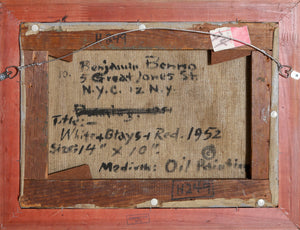 Benjamin Benno
5 Great Jones St
N.Y.C. 12 N.Y.
Title:-
White + Grays + Red. 1952
Size: 14" x 10".
Medium: Oil Painting